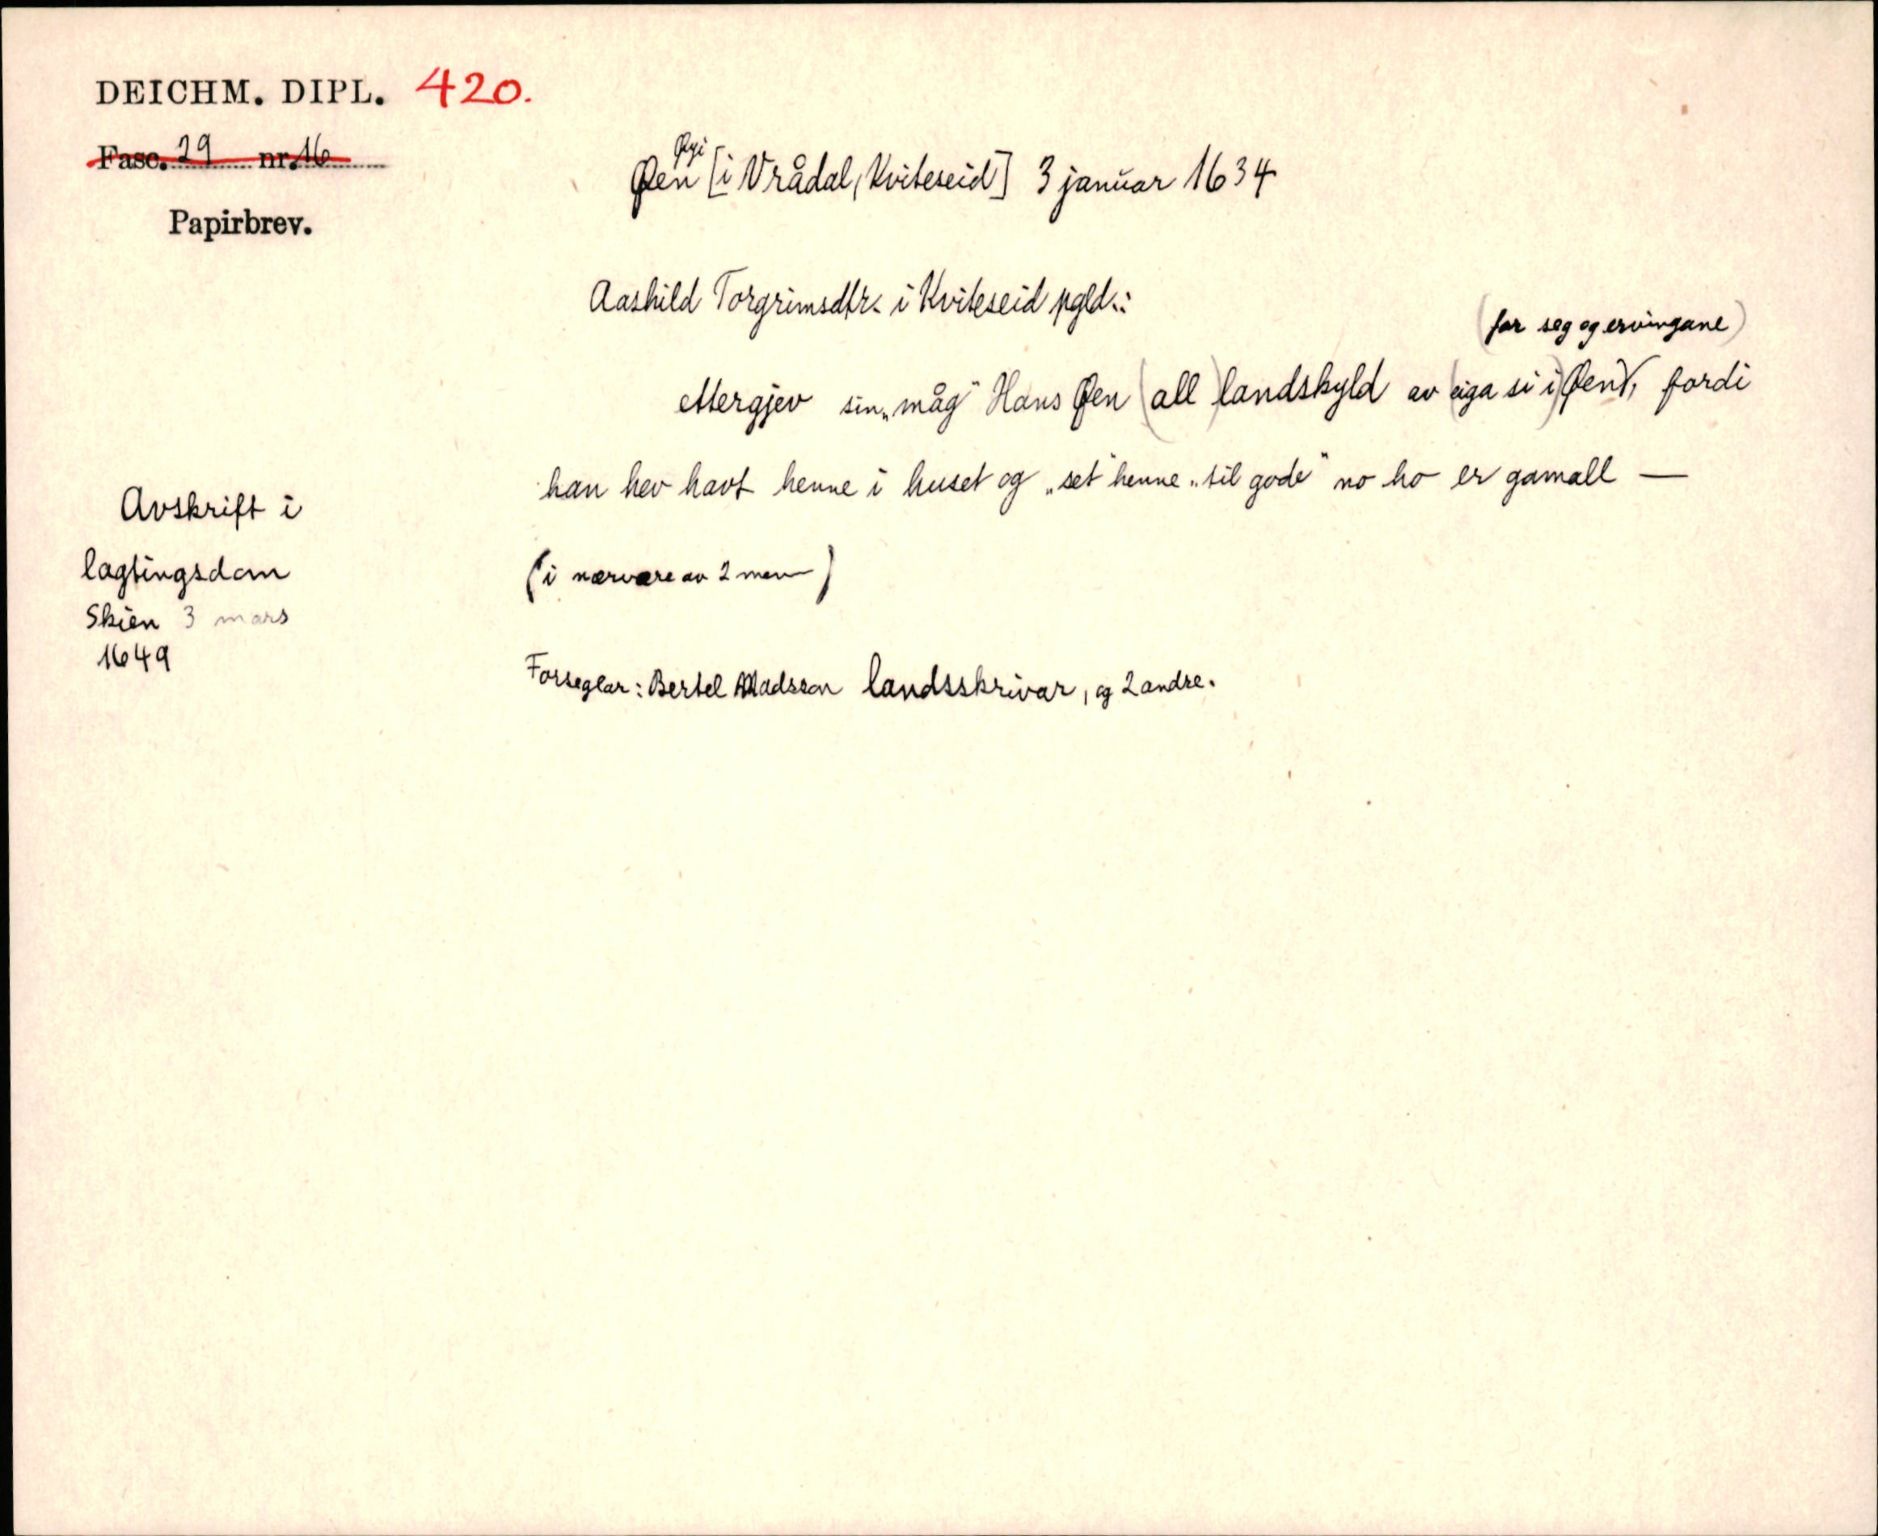 DEICHM. DIPL. 420.
Fasc. 29 nr. 16
Papirbrev.
Øyi
Øen [i Vrådal, Kviteseid] 3 januar 1634
Aashild Torgrimsdtr. i Kviteseid pgld.:
(for seg og ervingane)
ettergjev sin „måg" Hans Øen (all) landskyld av (eiga si i) Øen, fordi
han hev havt henne i huset og „set" henne „til gode" no ho er gamall —
(i nærvære av 2 menn)
Forseglar: Bertel Madsson landsskrivar, og 2 andre.
Avskrift i
lagtingsdom
Skien 3 mars
1649